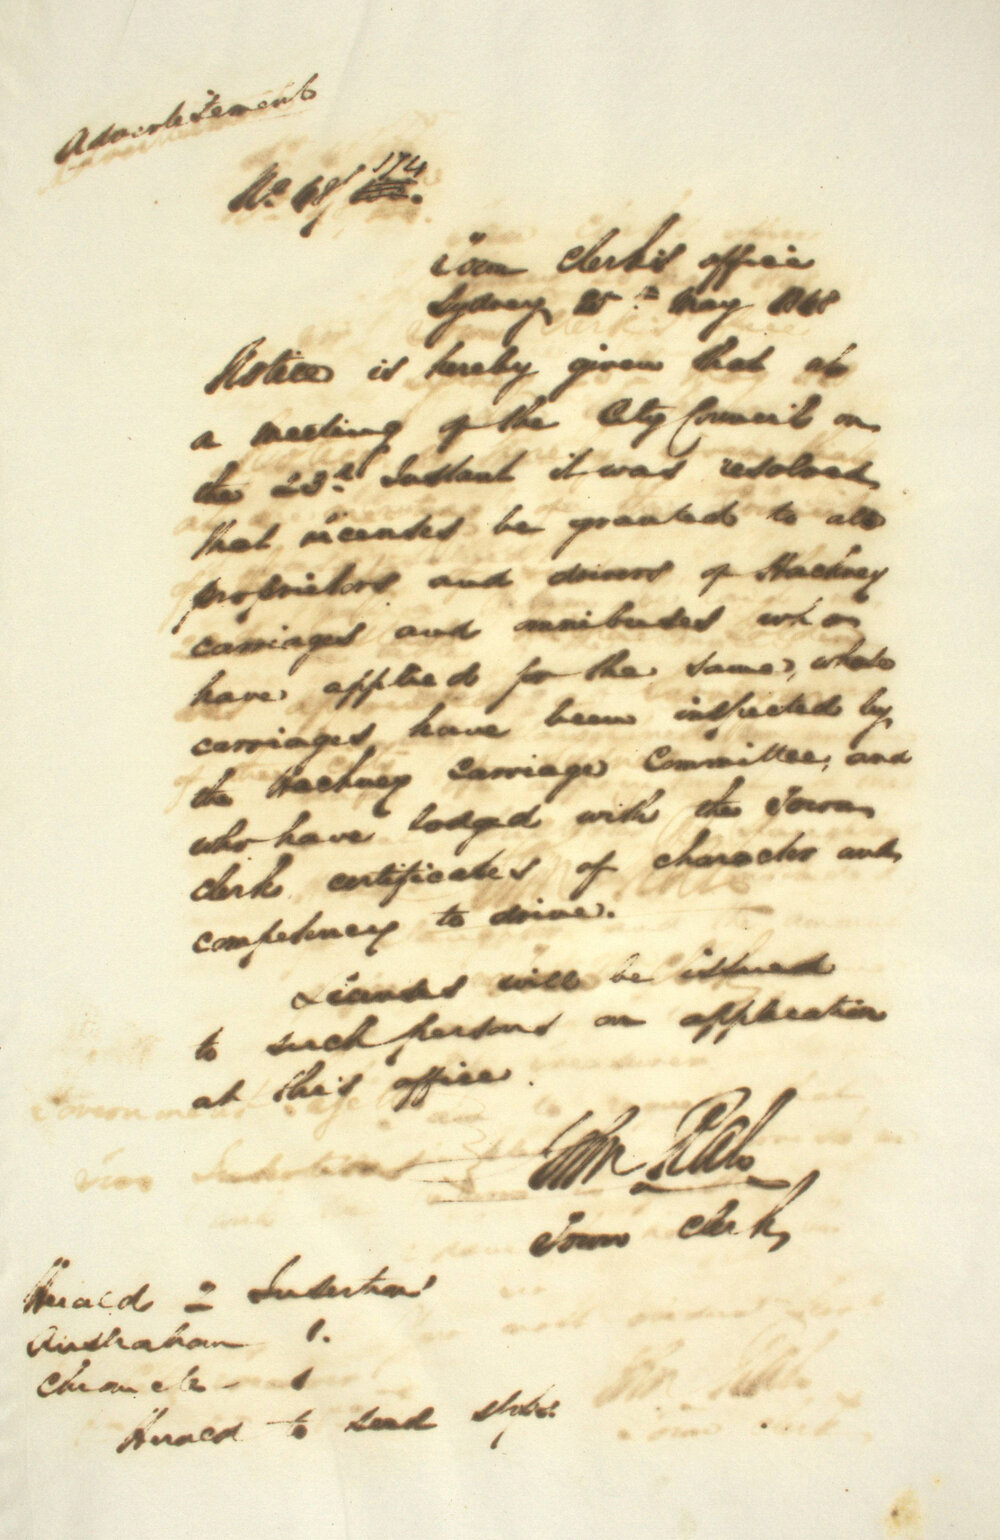 Advertisement
No. 48/174
Town Clerk's office
Sydney 25th May 1848
Notice is hereby given that at
a meeting of the City Council on
the 23rd Instant it was resolved
that licenses be granted to all
proprietors and drivers of Hackney
carriages and omnibuses who
have applied for the same, whose
carriages have been inspected by
the Hackney Carriage Committee, and
who have lodged with the Town
Clerk certificates of character and
competency to drive.
Licenses will be issued
to such persons on application
at this office.
John
Town Clerk
Herald 2 Insertions
Australian 1.
Chronicle 1
Herald to send slips.